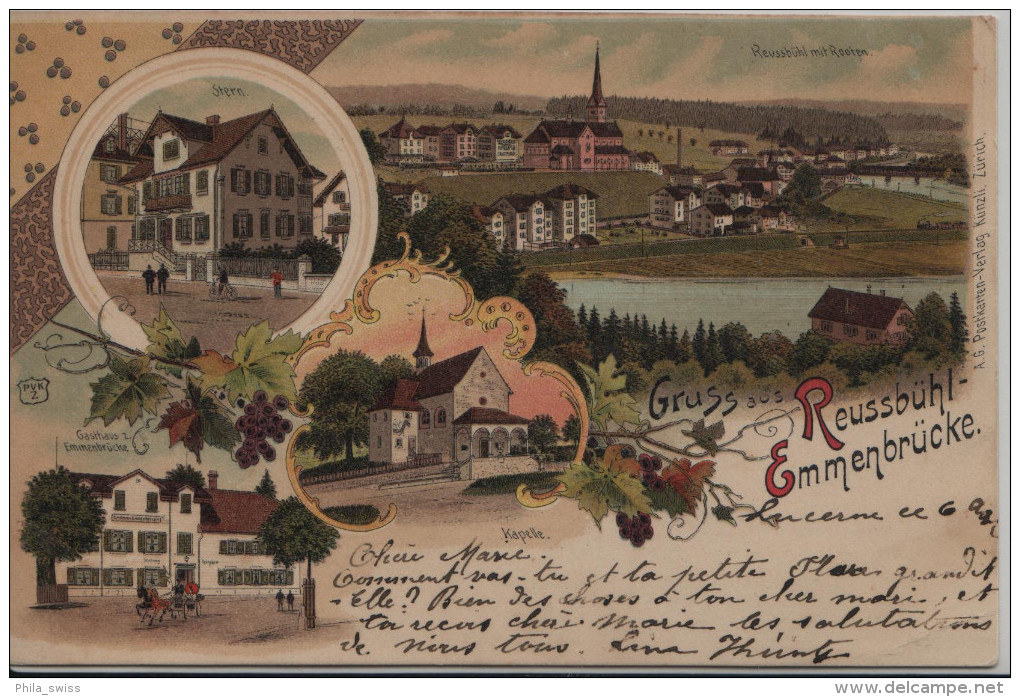 Stern.
Reussbühl mit Rooten.
A.G. Postkarten-Verlag Künzli, Zürich.
PVK
Z
Gasthaus z.
Emmenbrücke
Kapelle.
Gruss aus Reussbühl-
Emmenbrücke.
Lucerne ce 6
Chère Marie.
Comment vas-tu et ta petite grandit
-Elle? Bien des choses à ton cher mari, et
ta reçois chère Marie les salutations
de nous tous. Lina
Phila_swiss
www.delcampe.net